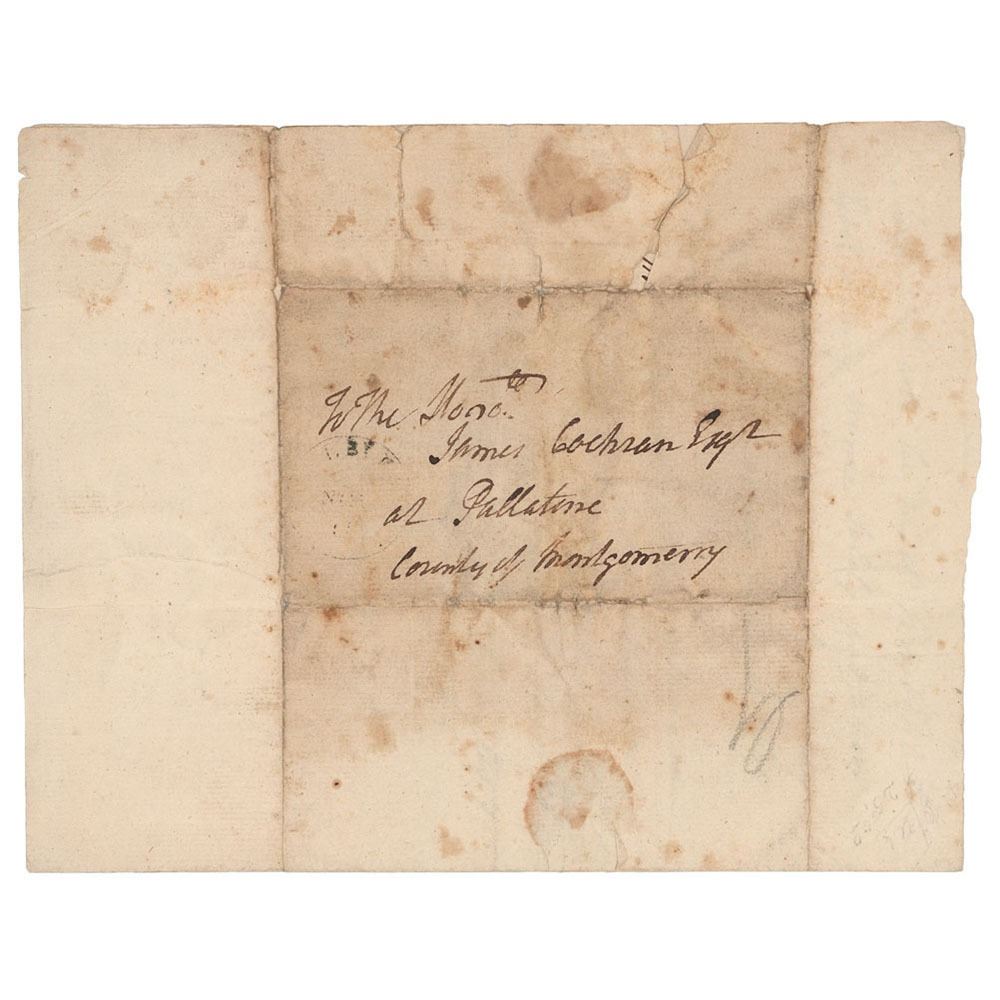 To The Honble
James Cochran Esqr
at Pallatine
County of Montgomerry